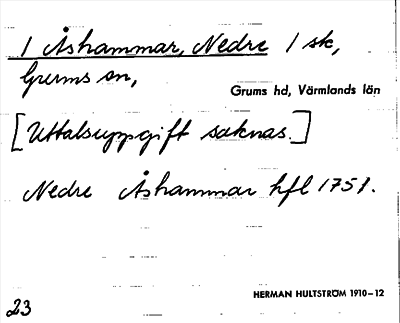 1 Åshammar, Nedre 1 sk,
Grums sn,
Grums hd, Värmlands län
[Uttalsuppgift saknas.]
Nedre Åshammar hfl 1751.
HERMAN HULTSTRÖM 1910–12
23